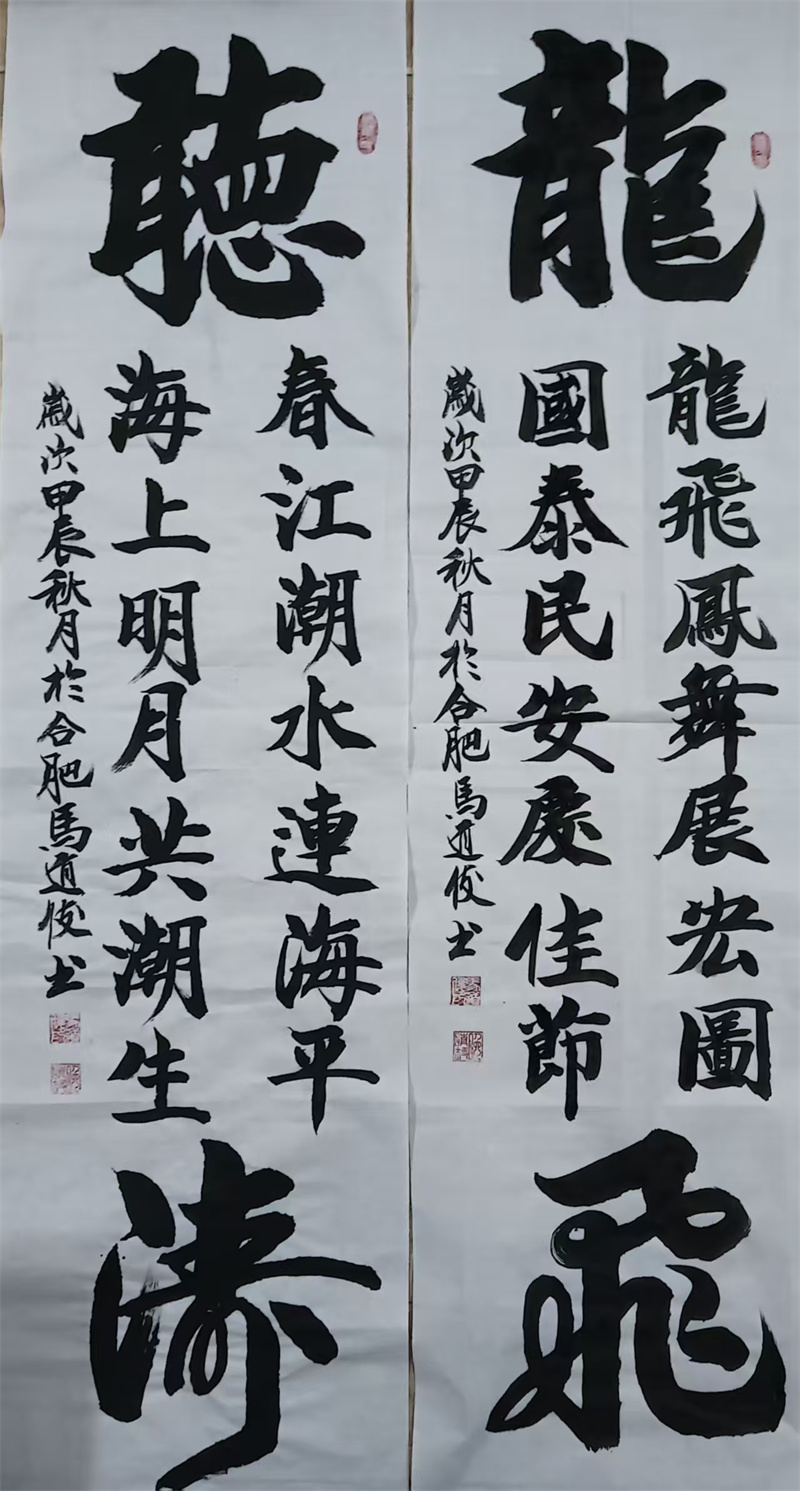 龍
龍飛鳳舞展宏圖
國泰民安慶佳節
歲次甲辰秋月於合肥馬道俊書
飛
聽
春江潮水連海平
海上明月共潮生
歲次甲辰秋月於合肥馬道俊書
濤